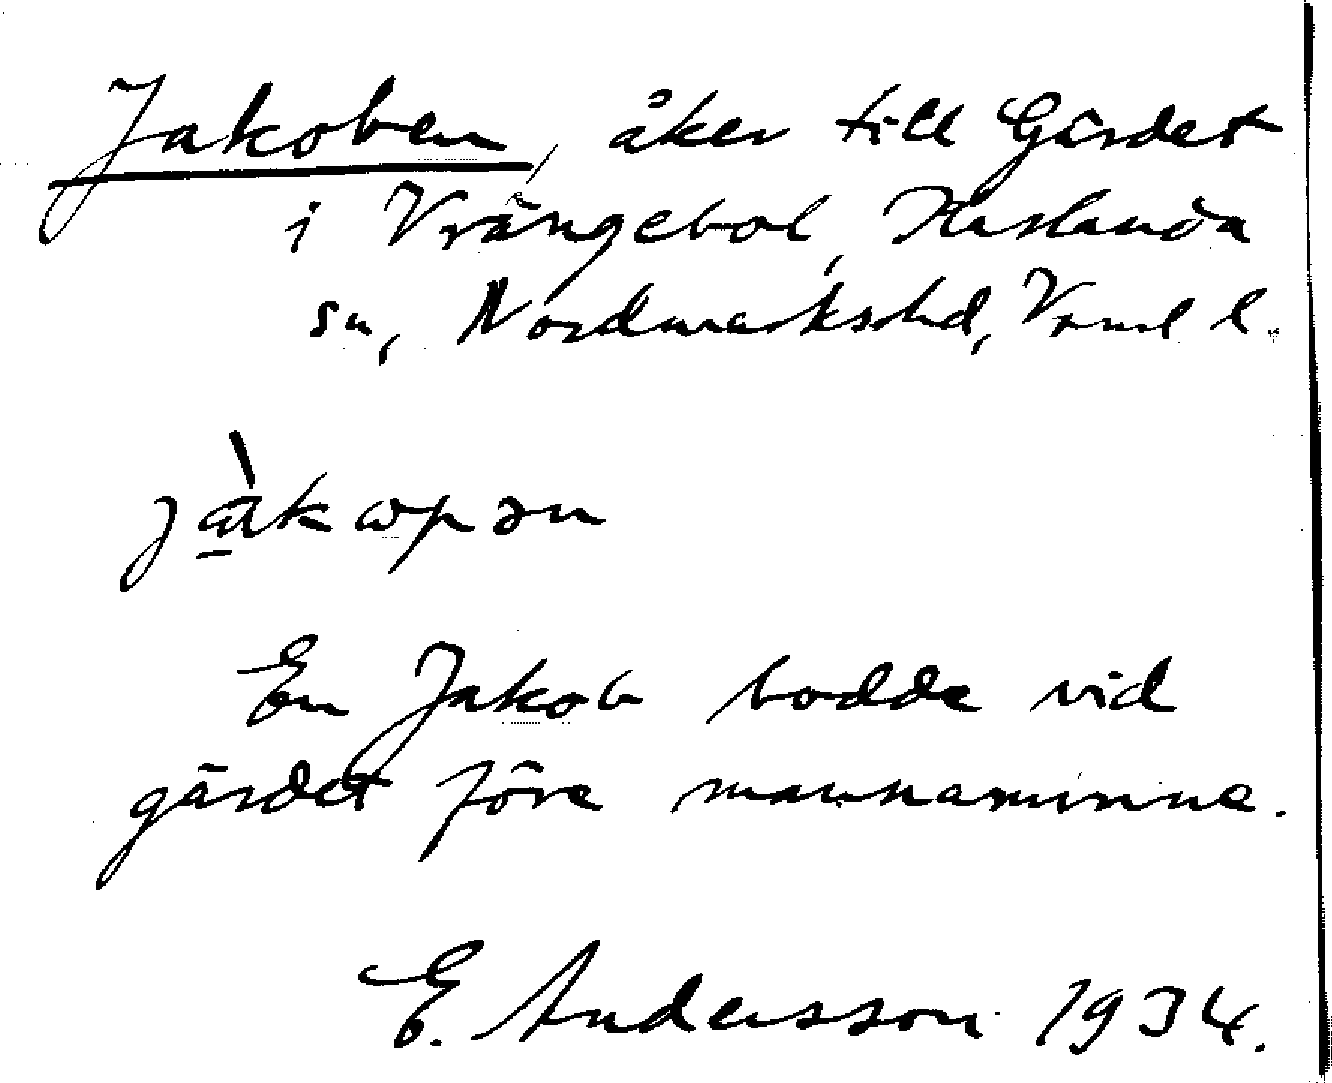 Jakoben, åker till Gärdet
i Vrängebol, Huslanda
sn, Nordmarkshd, Vrml l.
jàkωpən
En Jakob bodde vid
gärdet före mannaminne.
E. Andersson 1934.